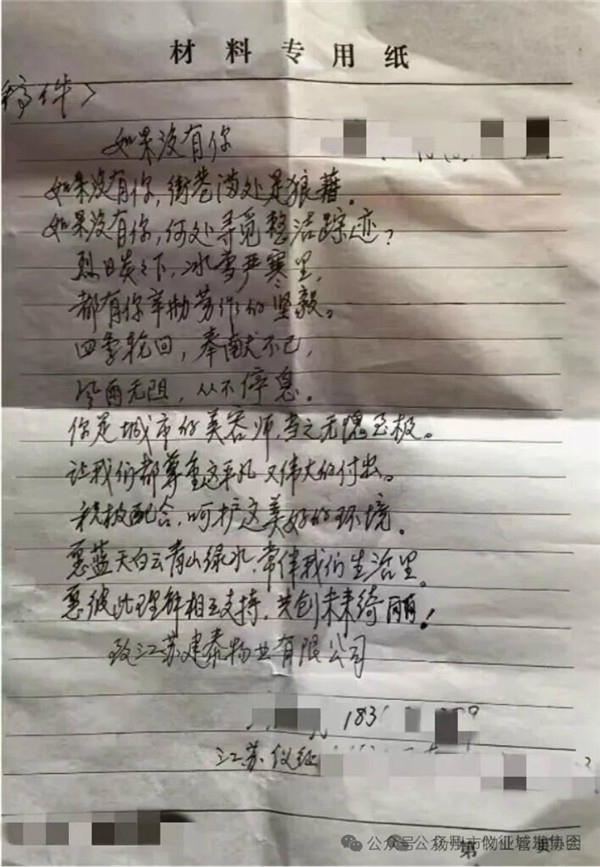 材料专用纸
稿件>
如果没有你
如果没有你,街巷满处是狼藉。
如果没有你,何处寻觅整洁踪迹?
烈日炎之下,冰雪严寒里,
都有你辛勤劳作的坚毅。
四季轮回,奉献不已,
风雨无阻,从不停息。
你是城市的美容师,当之无愧至极。
让我们都尊重这平凡又伟大的付出。
积极配合,呵护这美好的环境。
愿蓝天白云青山绿水,常伴我们生活里。
愿彼此理解相互支持,共创未来绮丽!
致江苏建泰物业有限公司
183
江苏仪征
第 页
公众号